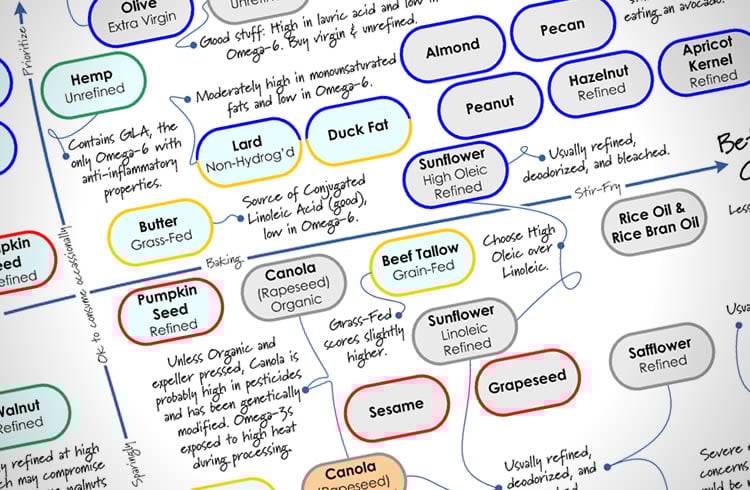 Olive
Extra Virgin
Unrefined
Good stuff: High in lauric acid and low in
Omega-6. Buy virgin & unrefined.
Prioritize
Hemp
Unrefined
Moderately high in monounsaturated
fats and low in Omega-6.
Almond
Pecan
eating an avocado.
Apricot
Kernel
Refined
Hazelnut
Refined
Peanut
Contains GLA, the
only Omega-6 with
anti-inflammatory
properties.
Lard
Non-Hydrog'd
Duck Fat
Sunflower
High Oleic
Refined
Usually refined,
deodorized, and bleached.
Butter
Grass-Fed
Source of Conjugated
Linoleic Acid (good),
low in Omega-6.
Stir-Fry
Rice Oil &
Rice Bran Oil
Less
Baking
OK to consume occasionally
Canola
(Rapeseed)
Organic
Beef Tallow
Grain-Fed
Choose High
Oleic over
Linoleic.
Pumpkin
Seed
Refined
Grass-Fed
scores slightly
higher.
Sunflower
Linoleic
Refined
Safflower
Refined
Unless Organic and
expeller pressed, Canola is
probably high in pesticides
and has been genetically
modified. Omega-3s
exposed to high heat
during processing.
Sesame
Grapeseed
Walnut
Refined
refined at high
may compromise
walnuts
Sparingly
Canola
(Rapeseed)
Usually refined,
deodorized, and
Severe
concerns